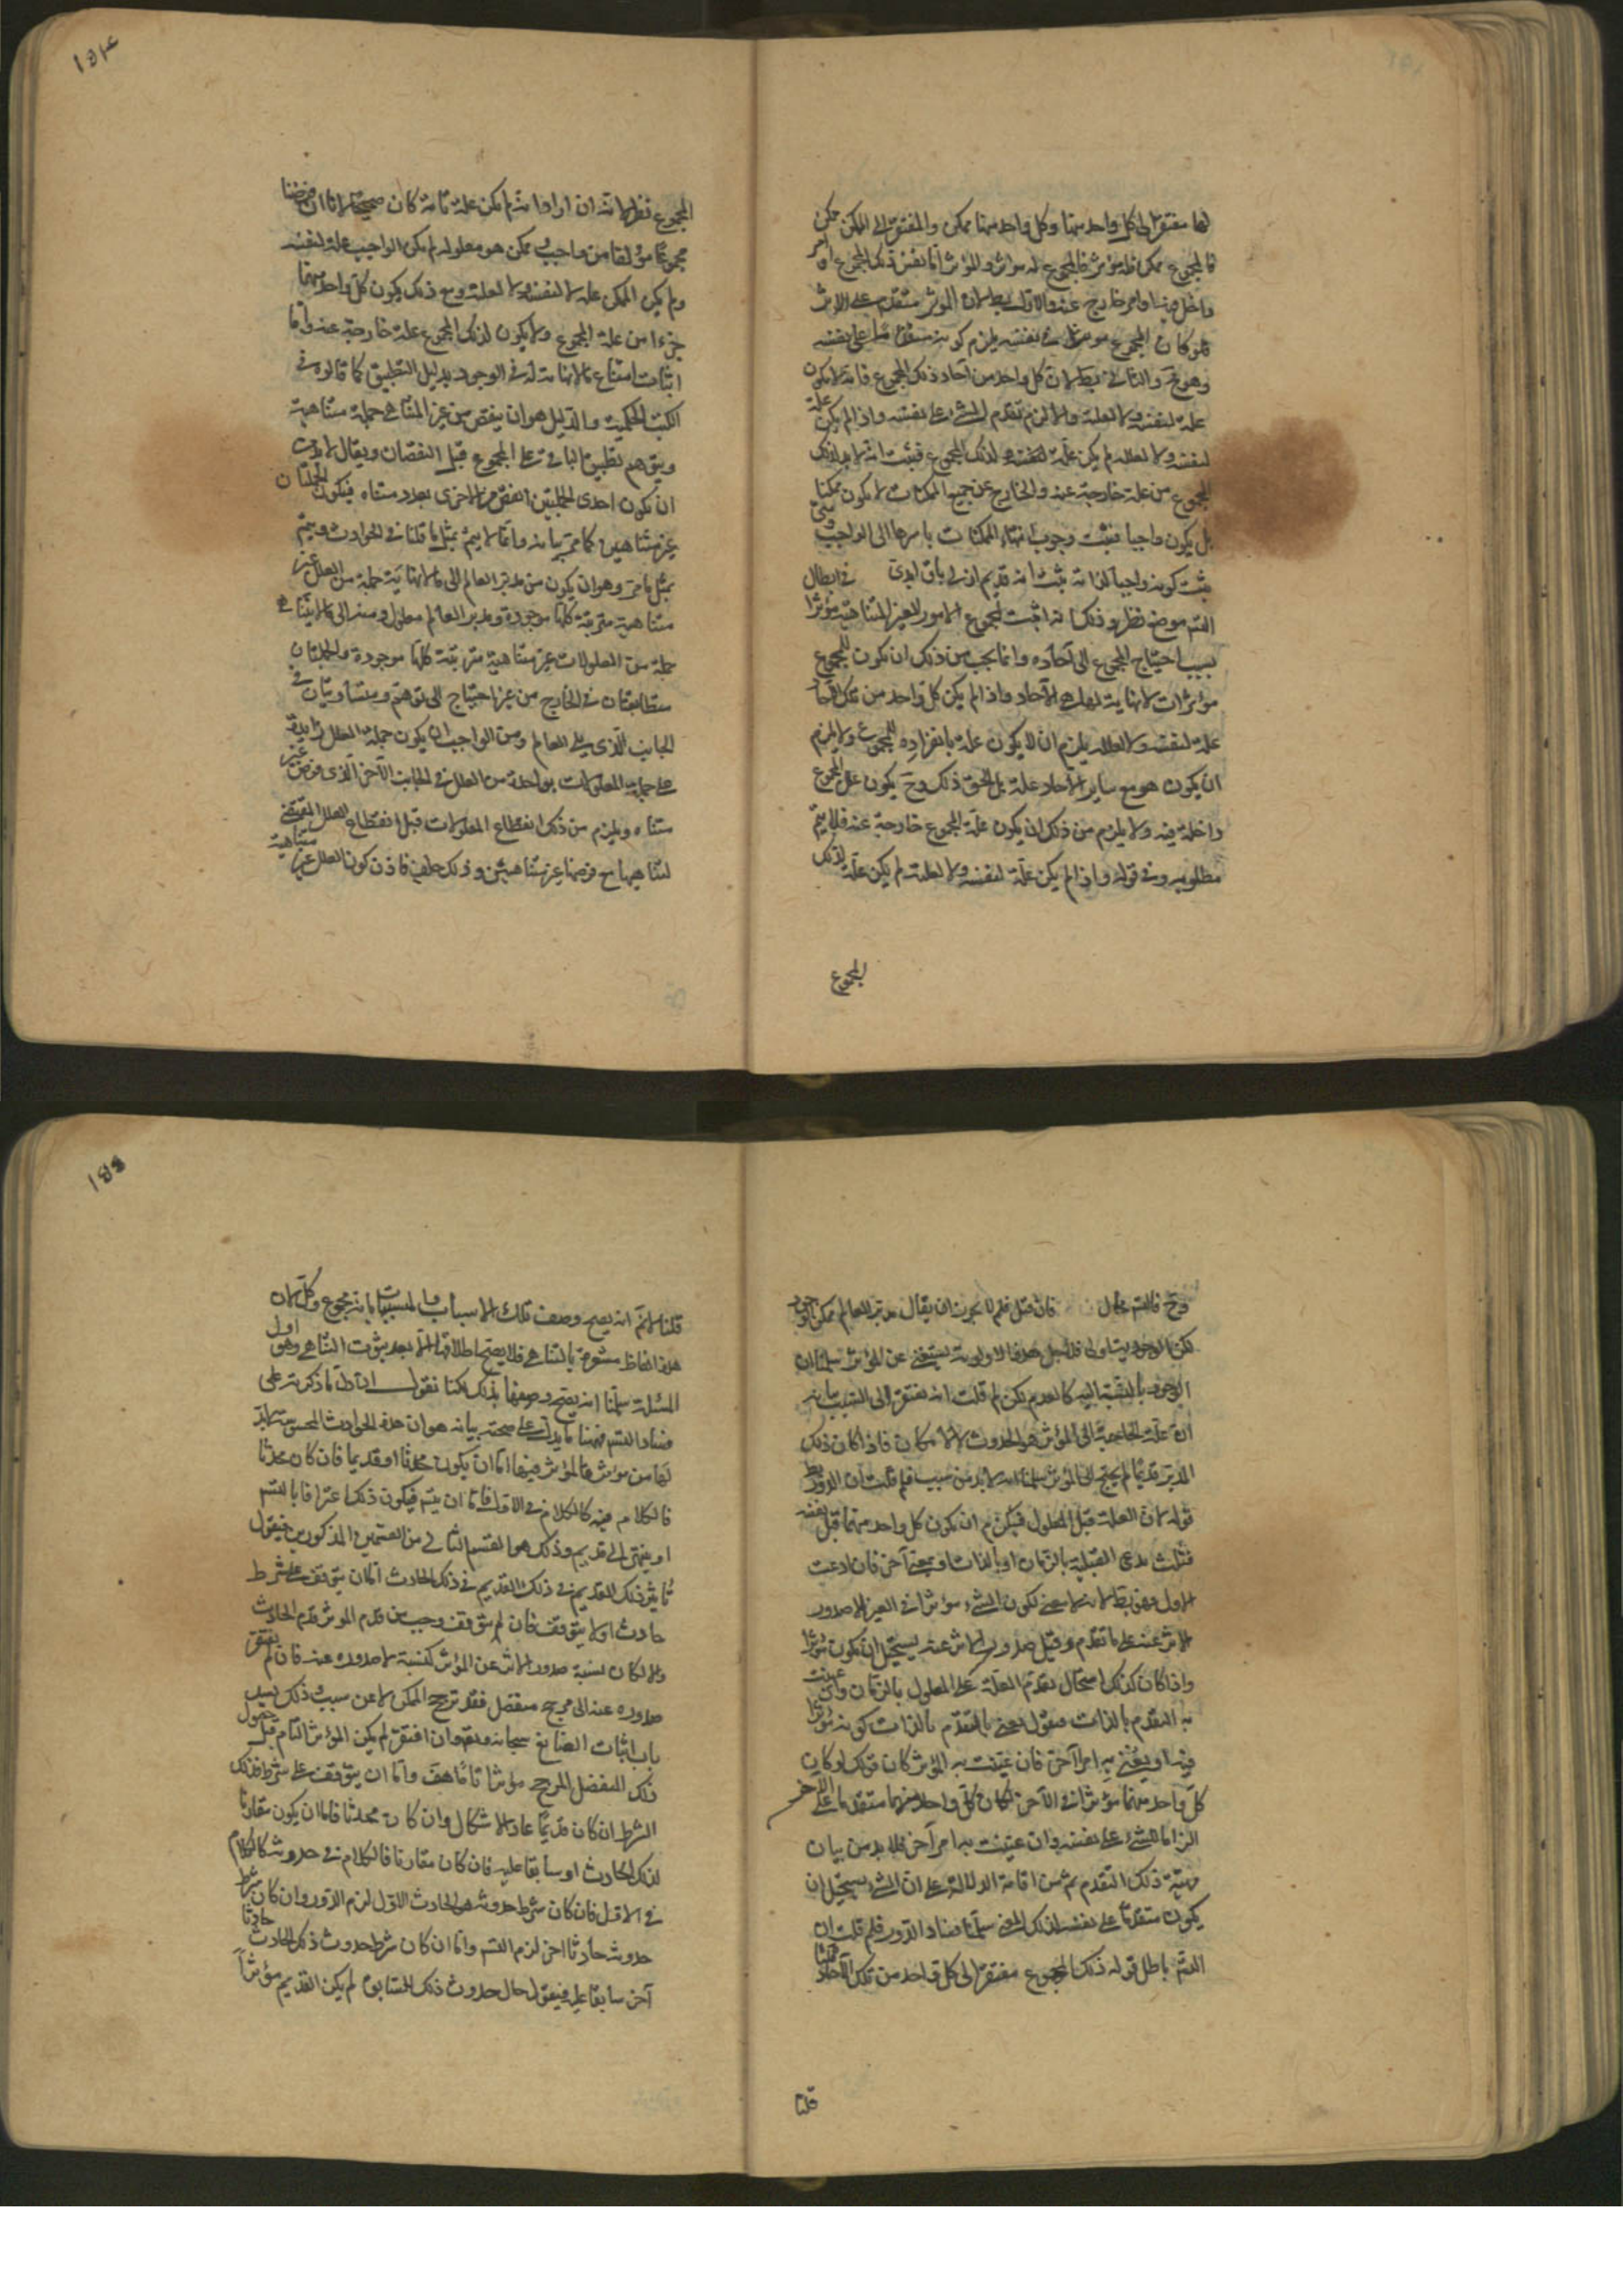 لها مفتقر الى كل واحد منها وكل واحد منها ممكن والمفتقر الى الممكن ممكن
فالمجموع ممكن فله مؤثر فالمجموع له مؤثر والمؤثر اما نفس ذلك المجموع او امر
داخل فيه او امر خارج عنه والاول باطل لان المؤثر متقدم على الاثر
فلو كان المجموع مؤثرا في نفسه يلزم كونه متقدما على نفسه
وهو مح والثاني بط لان كل واحد من آحاد ذلك المجموع فانه لا يكون
علة لنفسه ولا لعلته والا لزم تقدم الشيء على نفسه واذا لم يكن علة
لنفسه ولا لعلله لم يكن علة لذلك المجموع فثبت انه لا بد لذلك
المجموع من علة خارجة عنه والخارج عن جميع الممكنات لا يكون ممكنا
بل يكون واجبا فثبت وجوب انتهاء الممكنات باسرها الى الواجب ومتى
ثبت كونه واجبا لذاته ثبت انه قديم ازلي باق ابدى في ابطال
التسم موضع نظر وذلك انه اثبت لمجموع الامور الغير المتناهية مؤثرا
بسبب احتياج المجموع الى آحاده وانما يجب من ذلك ان يكون للمجموع
مؤثرات لا نهاية لها هي الآحاد واذا لم يكن كل واحد من تلك الآحاد
علة لنفسه ولا لعلله يلزم ان لا يكون علة بانفراده للمجموع ولا يلزم
ان يكون هو مع ساير الآحاد علة بل الحق ذلك وح يكون علل المجموع
داخلة فيه ولا يلزم من ذلك ان يكون علة المجموع خارجة عنه فلا يتم
مطلوبه وفي قوله واذا لم يكن علة لنفسه ولا لعلته لم يكن علة لذلك
المجموع
١٥٤
المجموع نظر لانه ان اراد انه لم يكن علة تامة كان صحيحا لانا ان فرضنا
مجموعا مؤلفا من واجب وممكن هو معلوله لم يكن الواجب علة لنفسه
ولم يكن الممكن علة لا لنفسه ولا لعلته ومع ذلك يكون كل واحد منهما
جزءا من علة المجموع ولا يكون لذلك المجموع علة خارجة عنه واما
اثبات امتناع ما لا نهاية له في الوجود بدليل التطبيق كما قالوه في
الكتب الحكمية والدليل هو ان ينقص من غير المتناهي جملة متناهية
ويتوهم تطبيق الباقي على المجموع قبل النقصان ويقال لا بد من
ان يكون احدى الجملتين انقص من الاخرى بعدد متناه فيكون الجملتان
غير متناهيين كما مر بيانه وانما لا يتم بمثل ما قلنا في الحوادث ويتم
بمثل ما مر وهو ان يكون من مدبر العالم الى ما لا نهاية جملة من العلل غير
متناهية مترتبة كلها موجودة ومدبر العالم معلول ومنه الى ما لا يتناهى
جملة من المعلولات غير متناهية مترتبة كلها موجودة والجملتان
متطابقتان في الخارج من غير احتياج الى توهم ومتساويتان في
الجانب الذي يلي العالم ومن الواجب ان يكون جملة العلل زايدة
على جملة المعلولات بواحدة من العلل في الجانب الآخر الذي فرض غير
متناه ويلزم من ذلك انقطاع المعلولات قبل انقطاع العلل المقتضي
لتناهيها مع فرضها غير متناهيتين وذلك خلف فاذن كون العلل غير متناهية
وح فالتسم محال فان قيل فلم لا يجوز ان يقال مدبر العالم ممكن الوجود
لكن الوجود به اولى فلاجل هذه الاولوية يستغني عن المؤثر سلمنا ان
الوجود بالنسبة اليه كالعدم لكن لم قلت انه يفتقر الى السبب بيانه
ان علة الحاجة الى المؤثر هو الحدوث لا الامكان فاذا كان ذلك
المدبر قديما لم يحتج الى المؤثر سلمنا انه لا بد من سبب فلم قلت ان الدور بط
قوله لان العلة قبل المعلول فيلزم ان يكون كل واحد منهما قبل نفسه
قلت مدعى القبلية بالزمان او بالذات او بمعنى آخر فان ادعيت
الاول فهو بط لانه لا معنى لكون الشيء مؤثرا في الغير الا صدور
الاثر عنه على ما تقدم وقبل صدور الاثر عنه يستحيل ان يكون مؤثرا
واذا كان كذلك استحال تقدم العلة على المعلول بالزمان وان عنيت
به التقدم بالذات فنقول نعني بالتقدم بالذات كونه مؤثرا
فيه او يعني به امرا آخر فان عنيت به المؤثر كان قولك لو كان
كل واحد منهما مؤثرا في الآخر لكان كل واحد منهما متقدما على الآخر
الزاما للشيء على نفسه وان عنيت به امرا آخر فلا بد من بيان
مهية ذلك التقدم ثم من اقامة الدلالة على ان الشيء يستحيل ان
يكون متقدما على نفسه بذلك المعنى سلمنا فساد الدور فلم قلت ان
التسم باطل قوله ذلك المجموع مفتقر الى كل واحد من تلك الآحاد قلنا
قلنا
١٥٥
قلنا لا نم انه يصح وصف تلك الاسباب والمسببات بانه مجموع وكل لان
هذه الفاظ مشعرة بالتناهي فلا يصح اطلاقها الا بعد ثبوت التناهي وهو اول
المسئلة سلمنا انه يصح وصفها بذلك لكنا نقول ان دل ما ذكرته على
فساد التسم فههنا ما يدل على صحته بيانه هو ان هذه الحوادث المحسوسة لا بد
لها من مؤثر فالمؤثر فيها اما ان يكون محدثا او قديما فان كان محدثا
فالكلام فيه كالكلام في الاول فاما ان يتسم فيكون ذلك اعترافا بالتسم
او ينتهي الى قديم وذلك هو القسم الثاني من القسمين المذكورين فنقول
تأثير ذلك القديم في ذلك الحادث اما ان يتوقف على شرط
حادث او لا يتوقف فان لم يتوقف وجب من قدم المؤثر قدم الحادث
والا لكان نسبة صدور الاثر عن المؤثر كنسبة لا صدوره عنه فان لم يفتقر
صدوره عنه الى مرجح منفصل فقد ترجح الممكن لا عن سبب وذلك يسد
باب اثبات الصانع سبحانه وتعالى وان افتقر لم يكن المؤثر التام قبل حصول
ذلك المنفصل المرجح مؤثرا تاما هف واما ان يتوقف على شرط فذلك
الشرط ان كان قديما عاد الاشكال وان كان محدثا فاما ان يكون مقارنا
لذلك الحادث او سابقا عليه فان كان مقارنا فالكلام في حدوثه كالكلام
في الاول فان كان شرط حدوثه هو الحادث الاول لزم الدور وان كان شرط
حدوثه حادثا آخر لزم التسم واما ان كان شرط حدوث ذلك الحادث حادثا
آخر سابقا عليه فنقول حال حدوث ذلك السابق لم يكن القديم مؤثرا